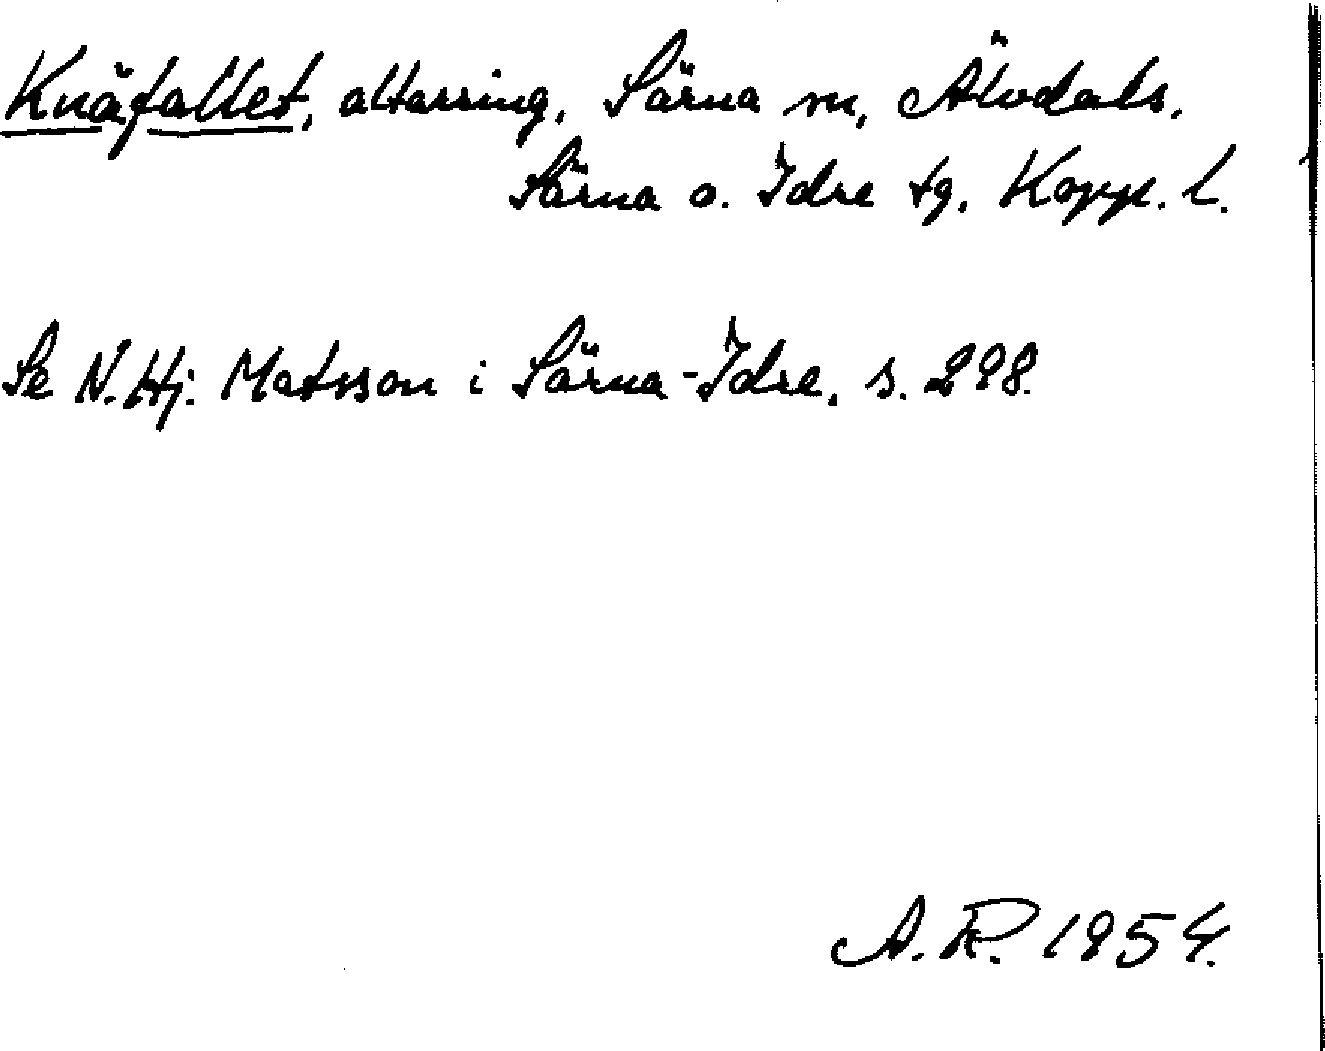 Knäfallet, altarring, Särna sn, Älvdals,
Särna o. Idre tg. Kopp. l.
Se N. Hj. Matsson i Särna-Idre, s. 298.
A. R. 1954.